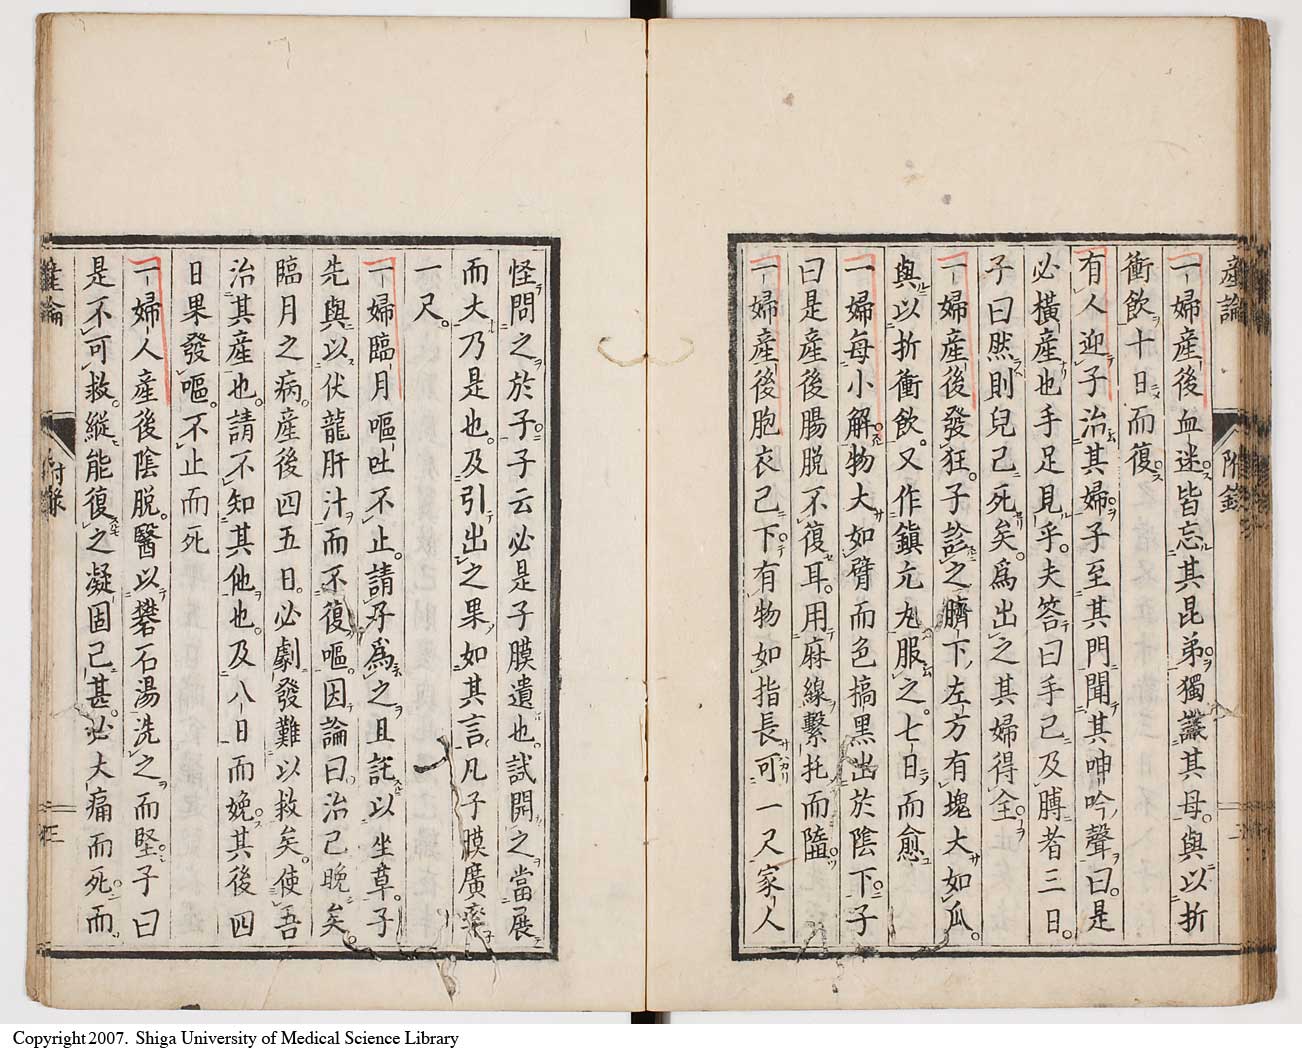 産論
附錄
二
一婦産後血迷皆忘其昆弟獨識其母與以折
衝飲十日而復
有人迎子治其婦子至其門聞其呻吟聲曰是
必横産也手足見乎夫答曰手已及膊者三日
子曰然則兒已死矣爲出之其婦得全
一婦産後發狂子診之臍下左方有塊大如瓜
與以折衝飲又作鎭亢丸服之七日而愈
一婦毎小解物大如臂而色搞黑出於陰下子
曰是産後腸脱不復耳用麻線繋托而隘
一婦産後胞衣已下有物如指長可一尺家人
怪問之於子子云必是子膜遺也試開之當展
而大乃是也及引出之果如其言凡子膜廣率
一尺
一婦臨月嘔吐不止請子爲之且託以坐草子
先與以伏龍肝汁而不復嘔因論曰治已晩矣
臨月之病産後四五日必劇發難以救矣使吾
治其産也請不知其他也及八日而娩其後四
日果發嘔不止而死
一婦人産後陰脱醫以礬石湯洗之而堅子曰
是不可救縱能復之凝固已甚必大痛而死而
産論
附錄
三
Copyright 2007. Shiga University of Medical Science Library